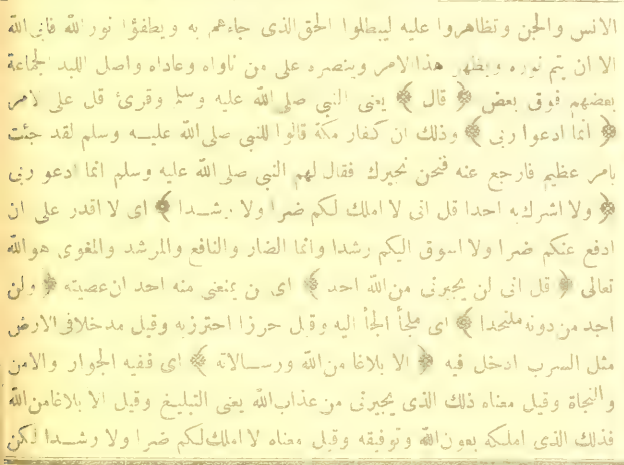 الانس والجن وتظاهروا عليه ليبطلوا الحق الذى جاءهم به ويطفؤا نور الله فابى الله
الا ان يتم نوره ويظهر هذا الامر وينصره على من ناواه وعاداه واصل اللبد الجماعة
بعضهم فوق بعض ﴿ قال ﴾ يعنى النبي صلى الله عليه وسلم وقرئ قل على الامر
﴿ انما ادعوا ربى ﴾ وذلك ان كفار مكة قالوا للنبي صلى الله عليه وسلم لقد جئت
بامر عظيم فارجع عنه فنحن نجيرك فقال لهم النبي صلى الله عليه وسلم انما ادعو ربى
﴿ ولا اشرك به احدا قل انى لا املك لكم ضرا ولا رشدا ﴾ اى لا اقدر على ان
ادفع عنكم ضرا ولا اسوق اليكم رشدا وانما الضار والنافع والمرشد والمغوى هو الله
تعالى ﴿ قل انى لن يجيرنى من الله احد ﴾ اى لن يمنعنى منه احد ان عصيته ﴿ ولن
اجد من دونه ملتحدا ﴾ اى ملجأ الجأ اليه وقيل حرزا احترز به وقيل مدخلا فى الارض
مثل السرب ادخل فيه ﴿ الا بلاغا من الله ورسالاته ﴾ اى ففيه الجوار والامن
والنجاة وقيل معناه ذلك الذى يجيرنى من عذاب الله يعنى التبليغ وقيل الا بلاغا من الله
فذلك الذى املكه بعون الله وتوفيقه وقيل معناه لا املك لكم ضرا ولا رشدا لكن